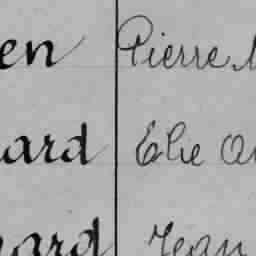 en Pierre
ard Elie
ard Jean